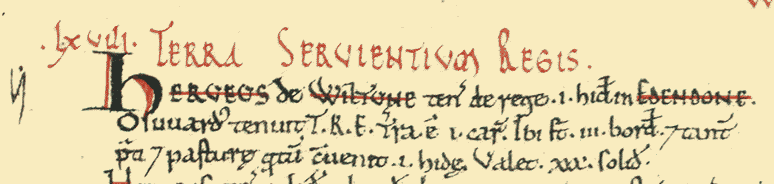 .lxviii. TERRA SERVIENTIUM REGIS.
HERVEUS de WILTONE ten̄ de rege .i. hid̄ in EDENDONE.
Osuuard' tenuit T.R.E. T̄ra ē .i. car̄. Ibi st̄ .iii. bord̄ ⁊ tant̄
p̄ti ⁊ pasturę qtū c̄uenit .i. hidę. Valet .xxx. solid̄.